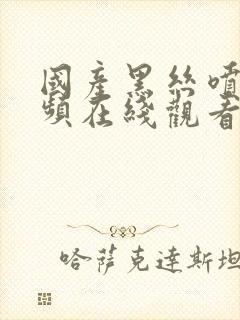 國產黑絲噴
頻在綫觀看
哈薩克達斯坦